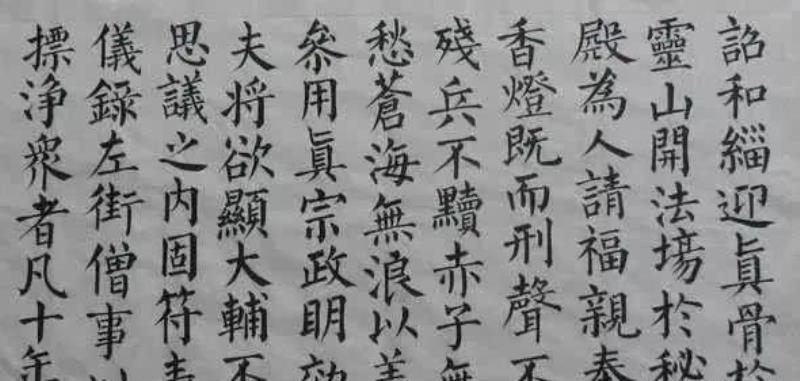 詔和緇迎眞骨於
靈山開法塲於秘
殿為人請福親奉
香燈既而刑聲不
殘兵不黷赤子無
愁蒼海無浪以盖
叅用眞宗政明効
夫将欲顯大輔不
思議之内固符眞
儀録左街僧事以
摽淨衆者凡十年